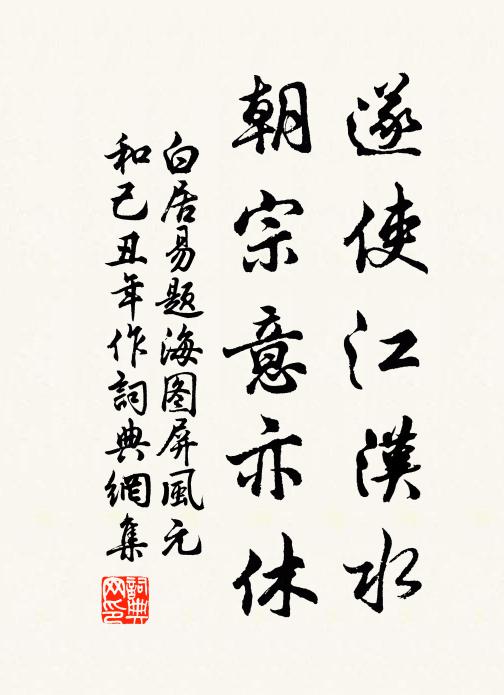 遂使江漢水
朝宗意亦休
白居易題海图屏風元
和己丑年作詞典網集
詞典网印